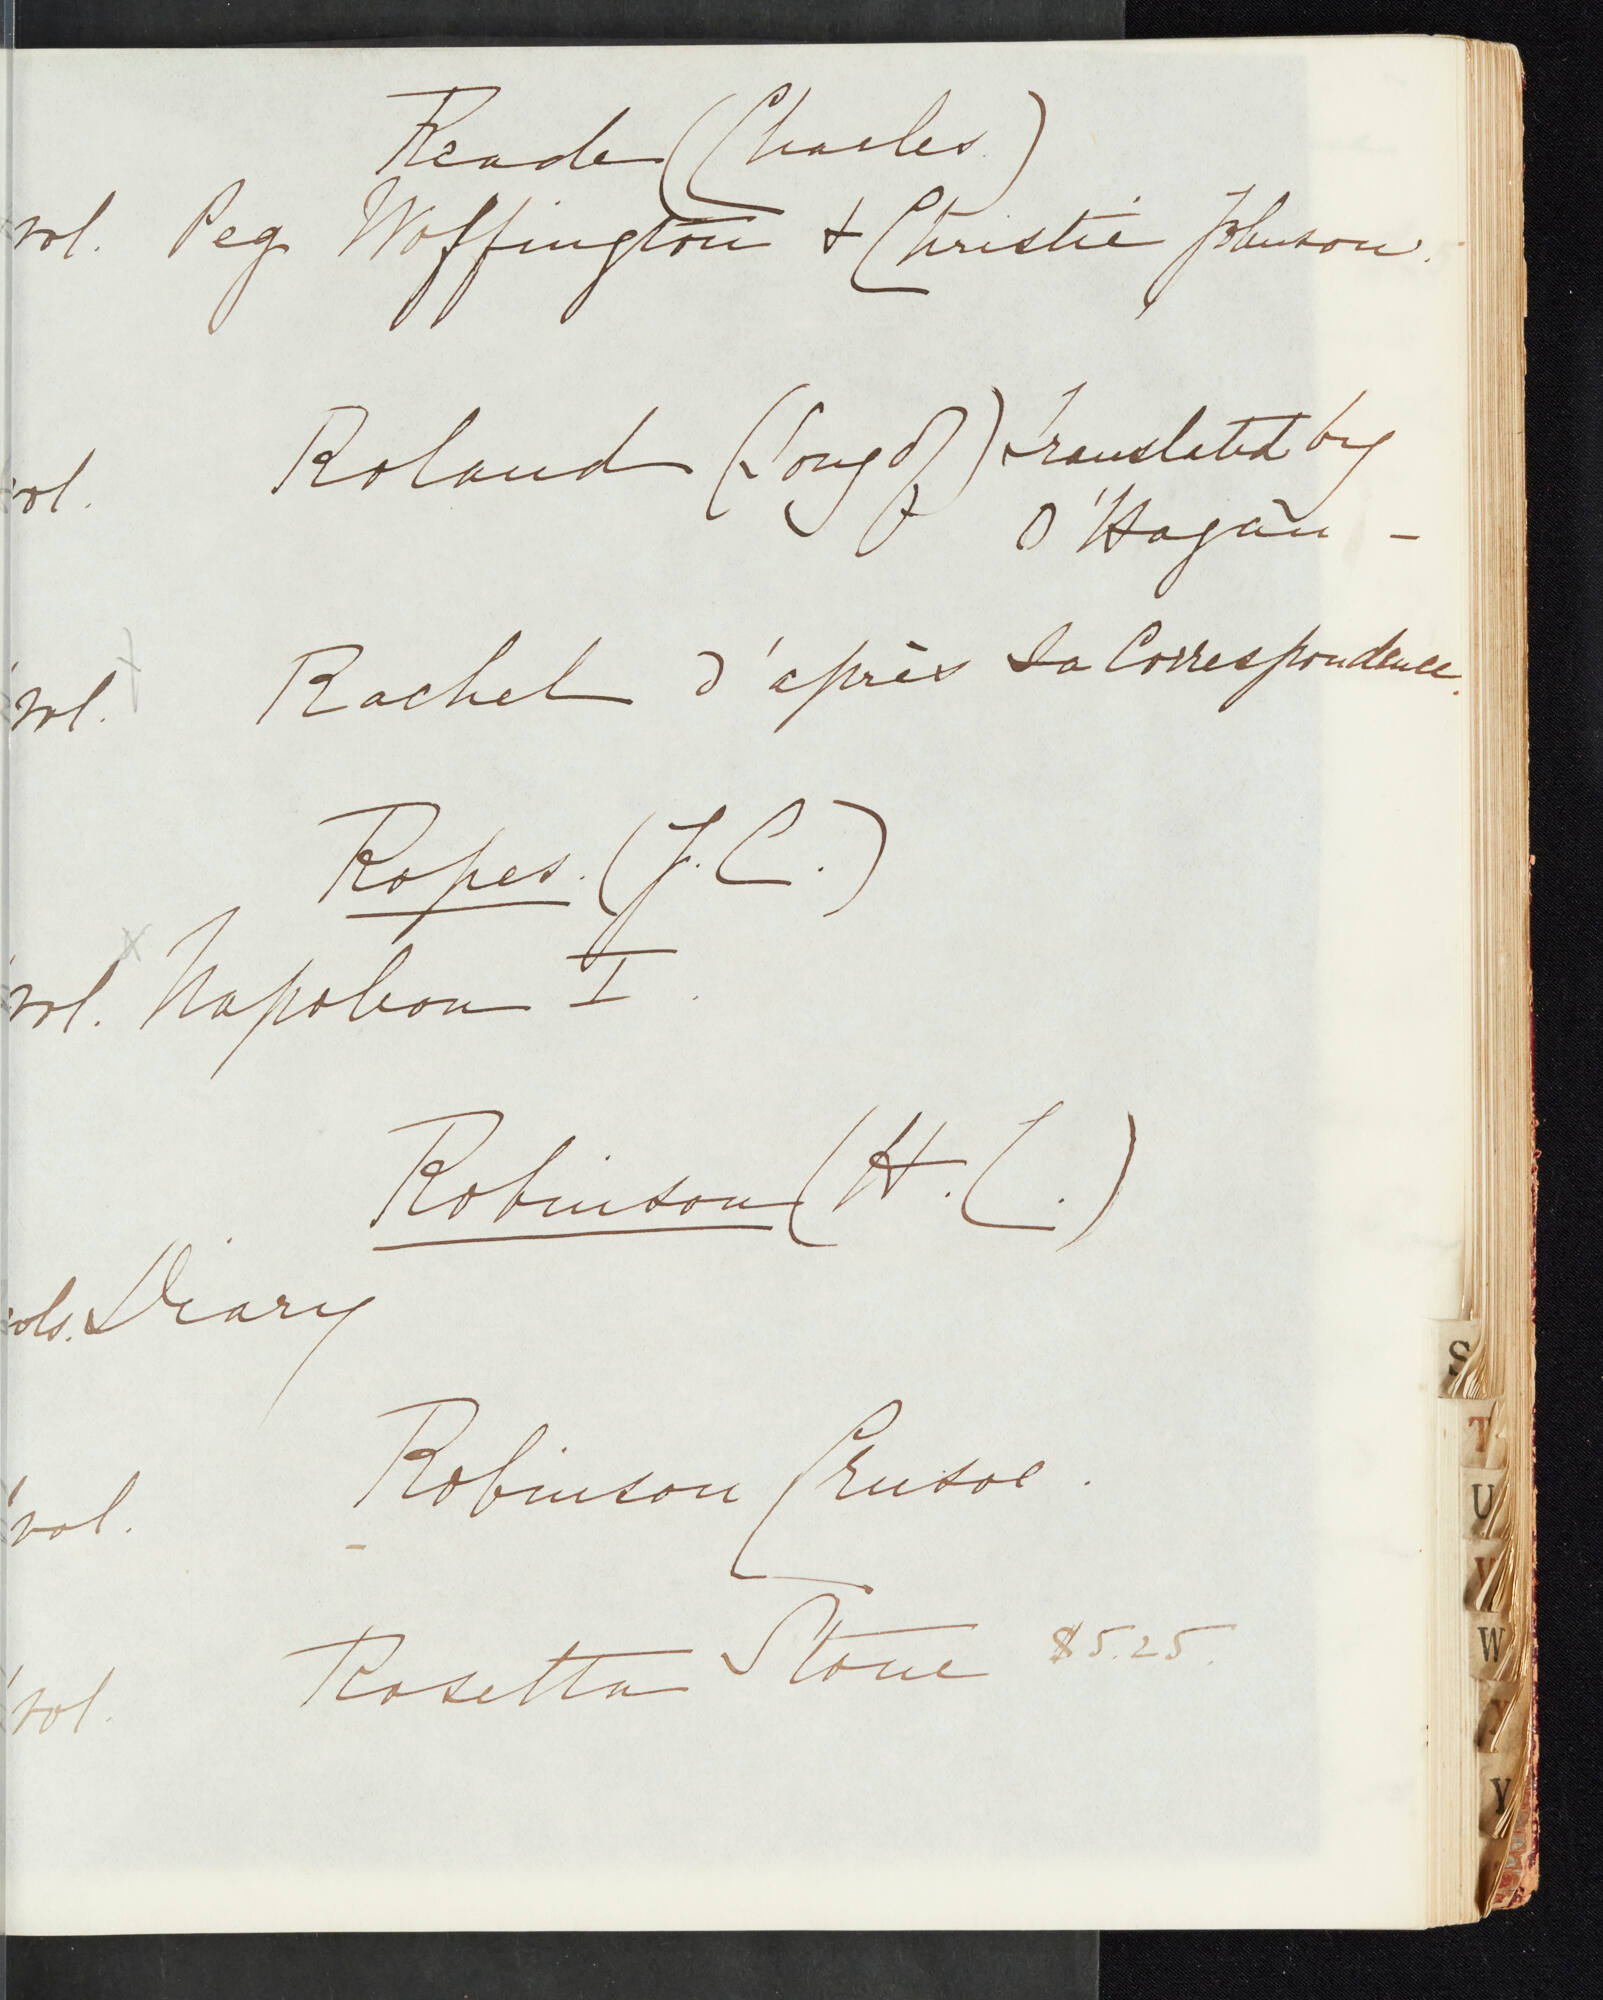 Reade (Charles)
vol. Peg Woffington & Christie Johnson.
Roland (Song of) translated by
vol.
O'Hagan -
Rachel d'après sa Correspondence.
vol.
Ropes. (J. C.)
vol. Napoleon I.
Robinson (H. C.)
vols. Diary
Robinson Crusoe.
vol.
Rosetta Stone $5.25.
vol.
S
T
U
V
W
X
Y